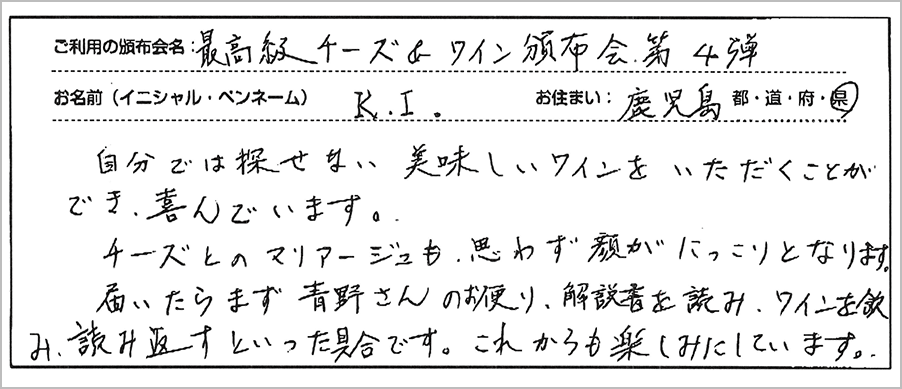 ご利用の頒布会名:最高級チーズ&ワイン頒布会.第4弾
お名前(イニシャル・ペンネーム) K.I. お住まい:鹿児島 都・道・府・県
自分では探せない 美味しいワインを いただくことが
でき、喜んでいます。
チーズとのマリアージュも、思わず顔がにっこりとなります。
届いたらまず 青野さんのお便り、解説書を読み、ワインを飲
み、読み返すといった具合です。これからも楽しみにしています。